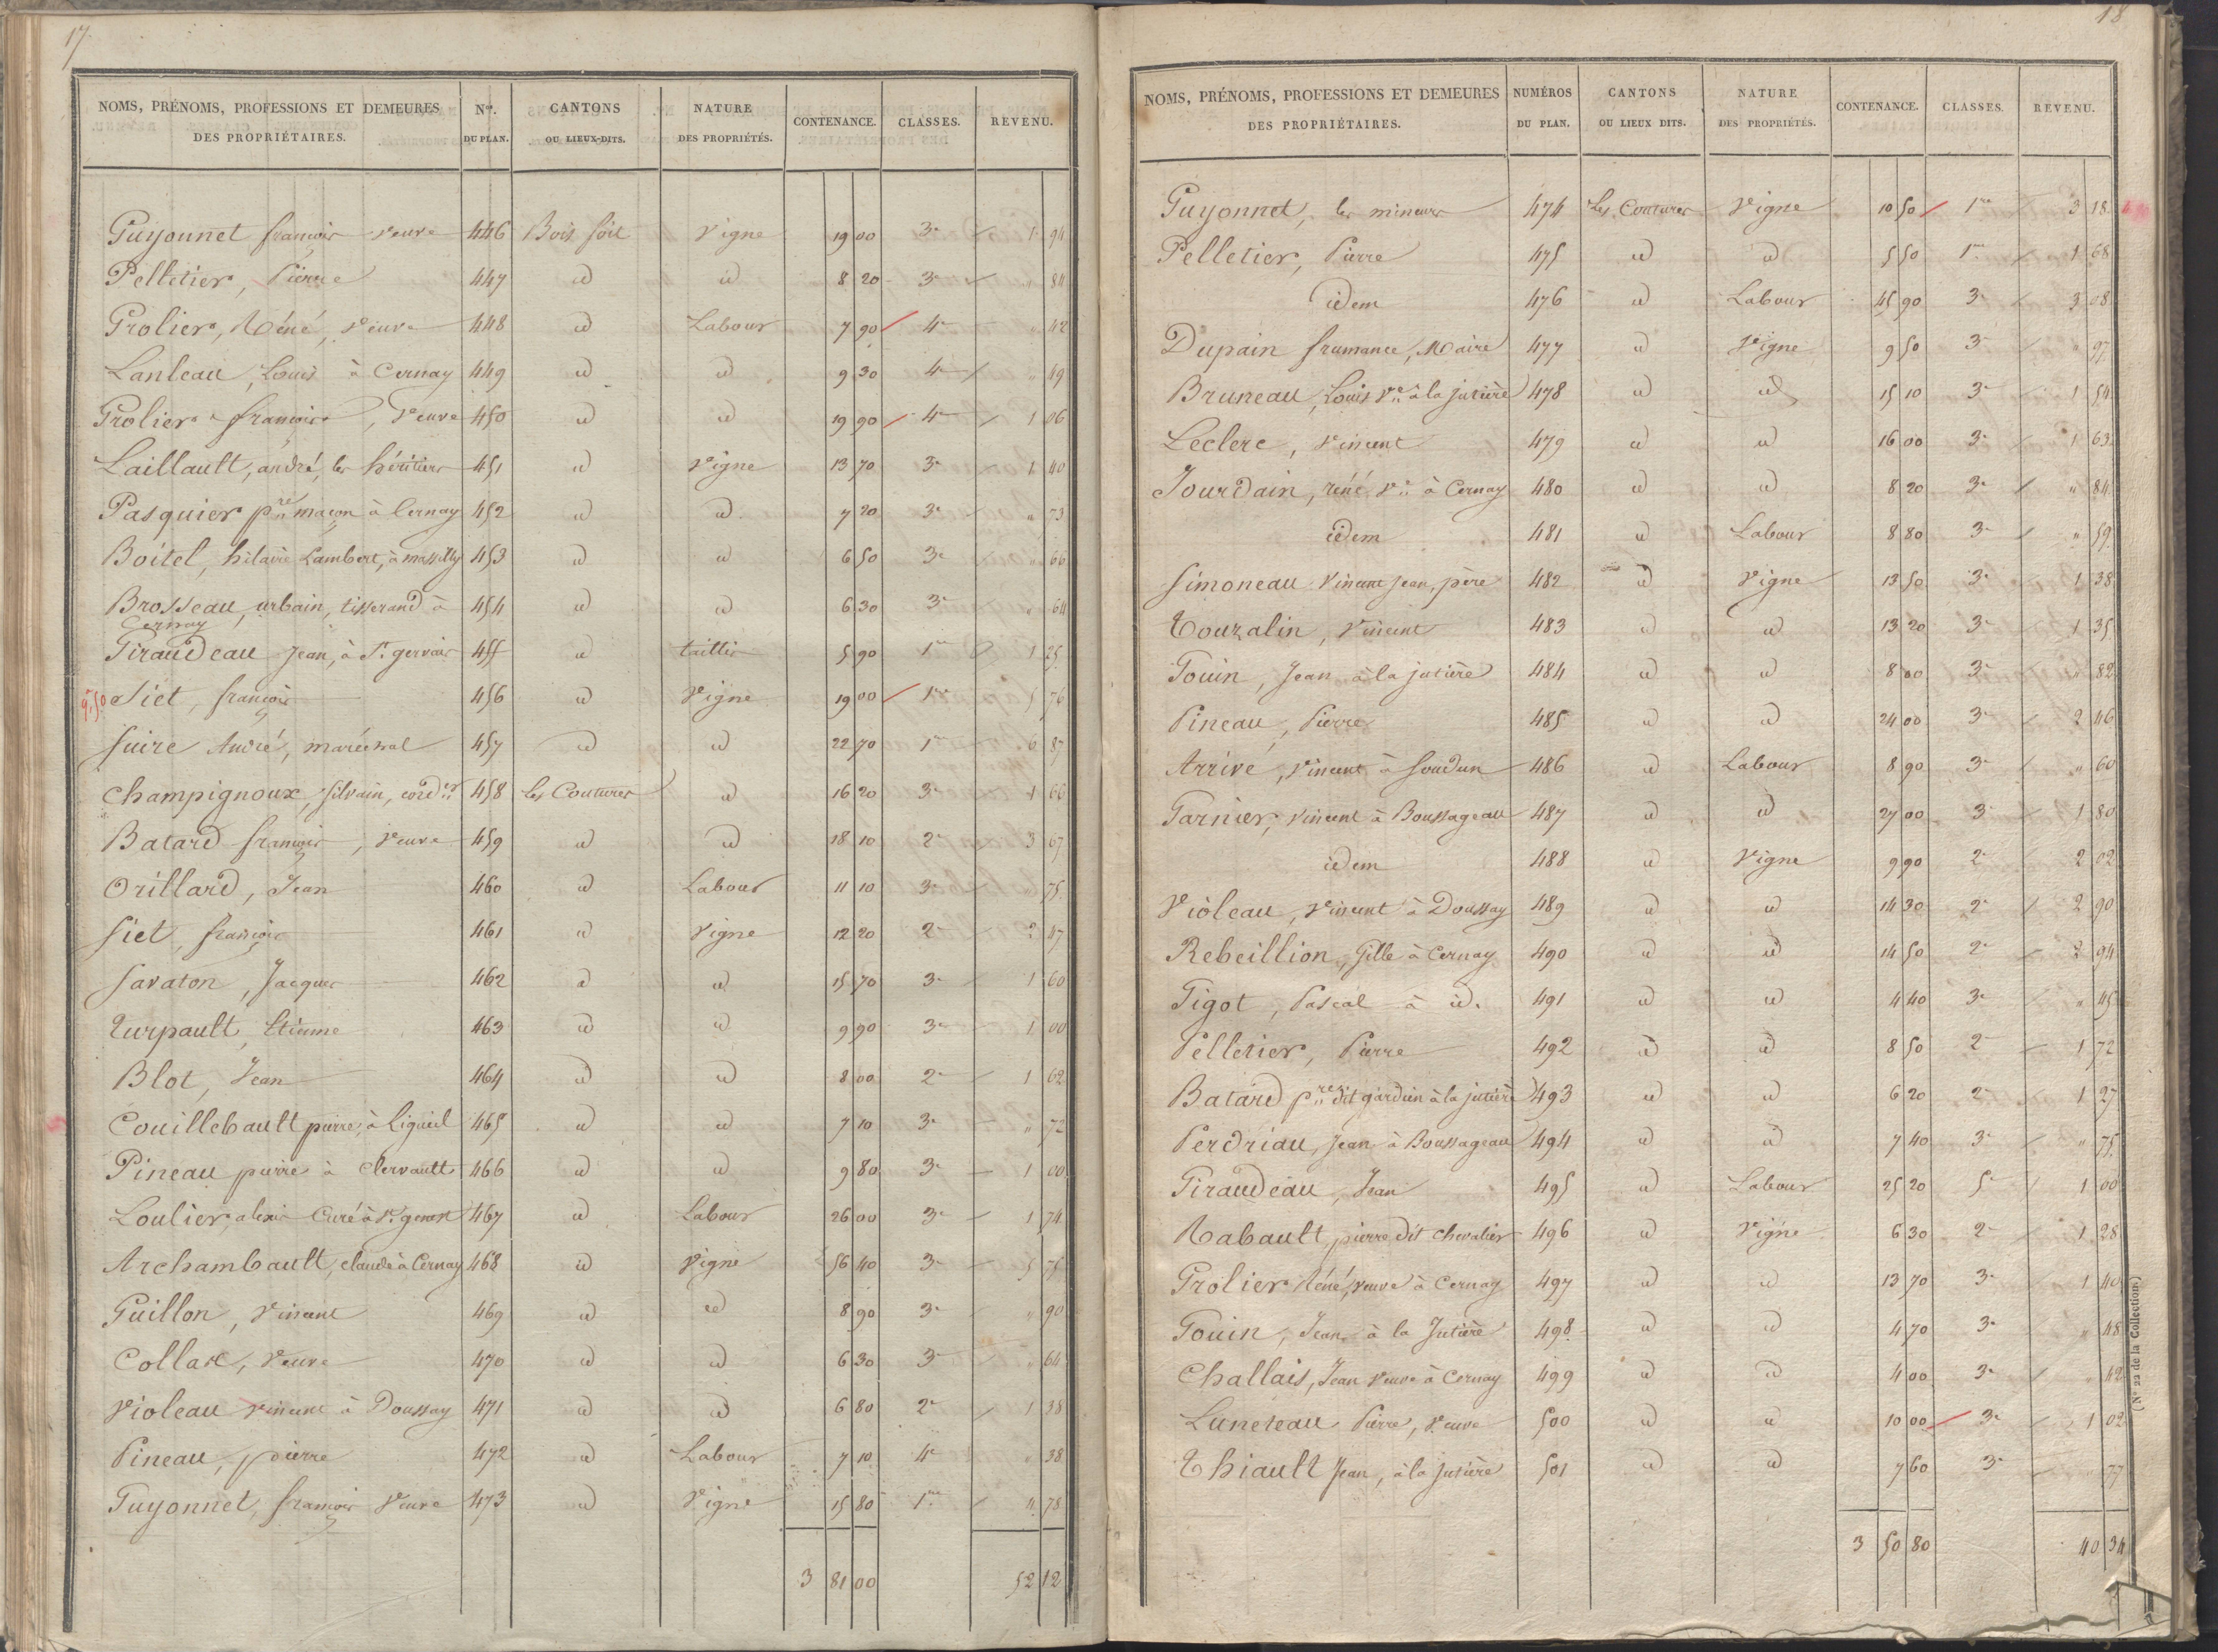 17
NOMS, PRÉNOMS, PROFESSIONS ET DEMEURES DES PROPRIÉTAIRES. Nos. DU PLAN. CANTONS OU LIEUX-DITS. NATURE DES PROPRIÉTÉS. CONTENANCE. CLASSES. REVENU.
Guyonnet françois veuve 446 Bois foit Vigne 19 00 3e 1 94
Pelletier, Pierre 447 id id 8 20 3e " 84
Grolier, Réné, Veuve 448 id Labour 7 90 4e " 42
Lanleau, Louis à Cernay 449 id id 9 30 4e " 49
Grolier françois, Veuve 450 id id 19 90 4e 1 06
Laillault, andré, les héritiers 451 id Vigne 13 70 3e 1 40
Pasquier pre maçon à Cernay 452 id id 7 20 3e " 73
Boitel, hilaire Lambert, à massilly 453 id id 6 50 3e " 66
Brosseau, urbain, tisserand à Cernay 454 id id 6 30 3e " 64
Giraudeau Jean, à St. gervais 455 id taillis 5 90 1re 1 25
9,50 Siet, françois 456 id Vigne 19 00 1re 5 76
Suire André, maréchal 457 id id 22 70 1re 6 87
Champignoux, Silvain, corder 458 les Coutures id 16 20 3e 1 66
Batard françois, Veuve 459 id id 18 10 2e 3 67
Orillard, Jean 460 id Labour 11 10 3e " 75
Siet, françois 461 id Vigne 12 20 2e 2 47
Savaton, Jacques 462 id id 15 70 3e 1 60
Turpault, Etienne 463 id id 9 90 3e 1 00
Blot, Jean 464 id id 8 00 2e 1 62
Couillebault pierre, à Ligueil 465 id id 7 10 3e " 72
Pineau pierre à Clervault 466 id id 9 80 3e 1 00
Loulier, alexis Curé à St. genest 467 id Labour 26 00 3e 1 74
Archambault, claude à Cernay 468 id Vigne 56 40 3e 5 75
Guillon, Vincent 469 id id 8 90 3e " 90
Collas, Veuve 470 id id 6 30 3e " 64
Violeau Vincent à Doussay 471 id id 6 80 2e 1 38
Pineau, pierre 472 id Labour 7 10 4e " 38
Guyonnet, françois Veuve 473 id Vigne 15 80 1re 4 78
3 81 00 52 12
18
NOMS, PRÉNOMS, PROFESSIONS ET DEMEURES DES PROPRIÉTAIRES. NUMÉROS DU PLAN. CANTONS OU LIEUX DITS. NATURE DES PROPRIÉTÉS. CONTENANCE. CLASSES. REVENU.
Guyonnet, les mineurs 474 Les Coutures Vigne 10 50 1re 3 18
Pelletier, Pierre 475 id id 5 50 1re 1 68
idem 476 id Labour 45 90 3e 3 08
Dupain frumance, Maire 477 id Vigne 9 50 3e " 97
Bruneau, Louis Ve à la jutière 478 id id 15 10 3e 1 54
Leclerc, Vincent 479 id id 16 00 3e 1 63
Jourdain, réné Ve à Cernay 480 id id 8 20 3e " 84
idem 481 id Labour 8 80 3e " 59
Simoneau Vincent Jean, père 482 id Vigne 13 50 3e 1 38
Touzalin, Vincent 483 id id 13 20 3e 1 35
Gouin, Jean à la jutière 484 id id 8 00 3e " 82
Pineau, Pierre 485 id id 24 00 3e 2 46
Arrivé, Vincent à Soudun 486 id Labour 8 90 3e " 60
Garnier, Vincent à Boussageau 487 id id 27 00 3e 1 80
idem 488 id Vigne 9 90 2e 2 02
Violeau, Vincent à Doussay 489 id id 14 30 2e 2 90
Rebeillion, Gille à Cernay 490 id id 14 50 2e 2 94
Gigot, Pascal à id. 491 id id 4 40 3e " 45
Pelletier, Pierre 492 id id 8 50 2e 1 72
Batard pre dit gardien à la jutière 493 id id 6 20 2e 1 27
Perdriau, Jean à Boussageau 494 id id 7 40 3e " 75
Giraudeau, Jean 495 id Labour 25 20 5e 1 00
Rabault, pierre dit Chevalier 496 id Vigne 6 30 2e 1 28
Grolier Réné, veuve à Cernay 497 id id 13 70 3e 1 40
Gouin, Jean à la Jutière 498 id id 4 70 3e " 48
Challais, Jean Veuve à Cernay 499 id id 4 00 3e " 42
Luneteau Pierre, Veuve 500 id id 10 00 3e 1 02
Thiault Jean, à la jutière 501 id id 7 60 3e " 77
3 50 80 40 34
(N° 22 de la Collection)